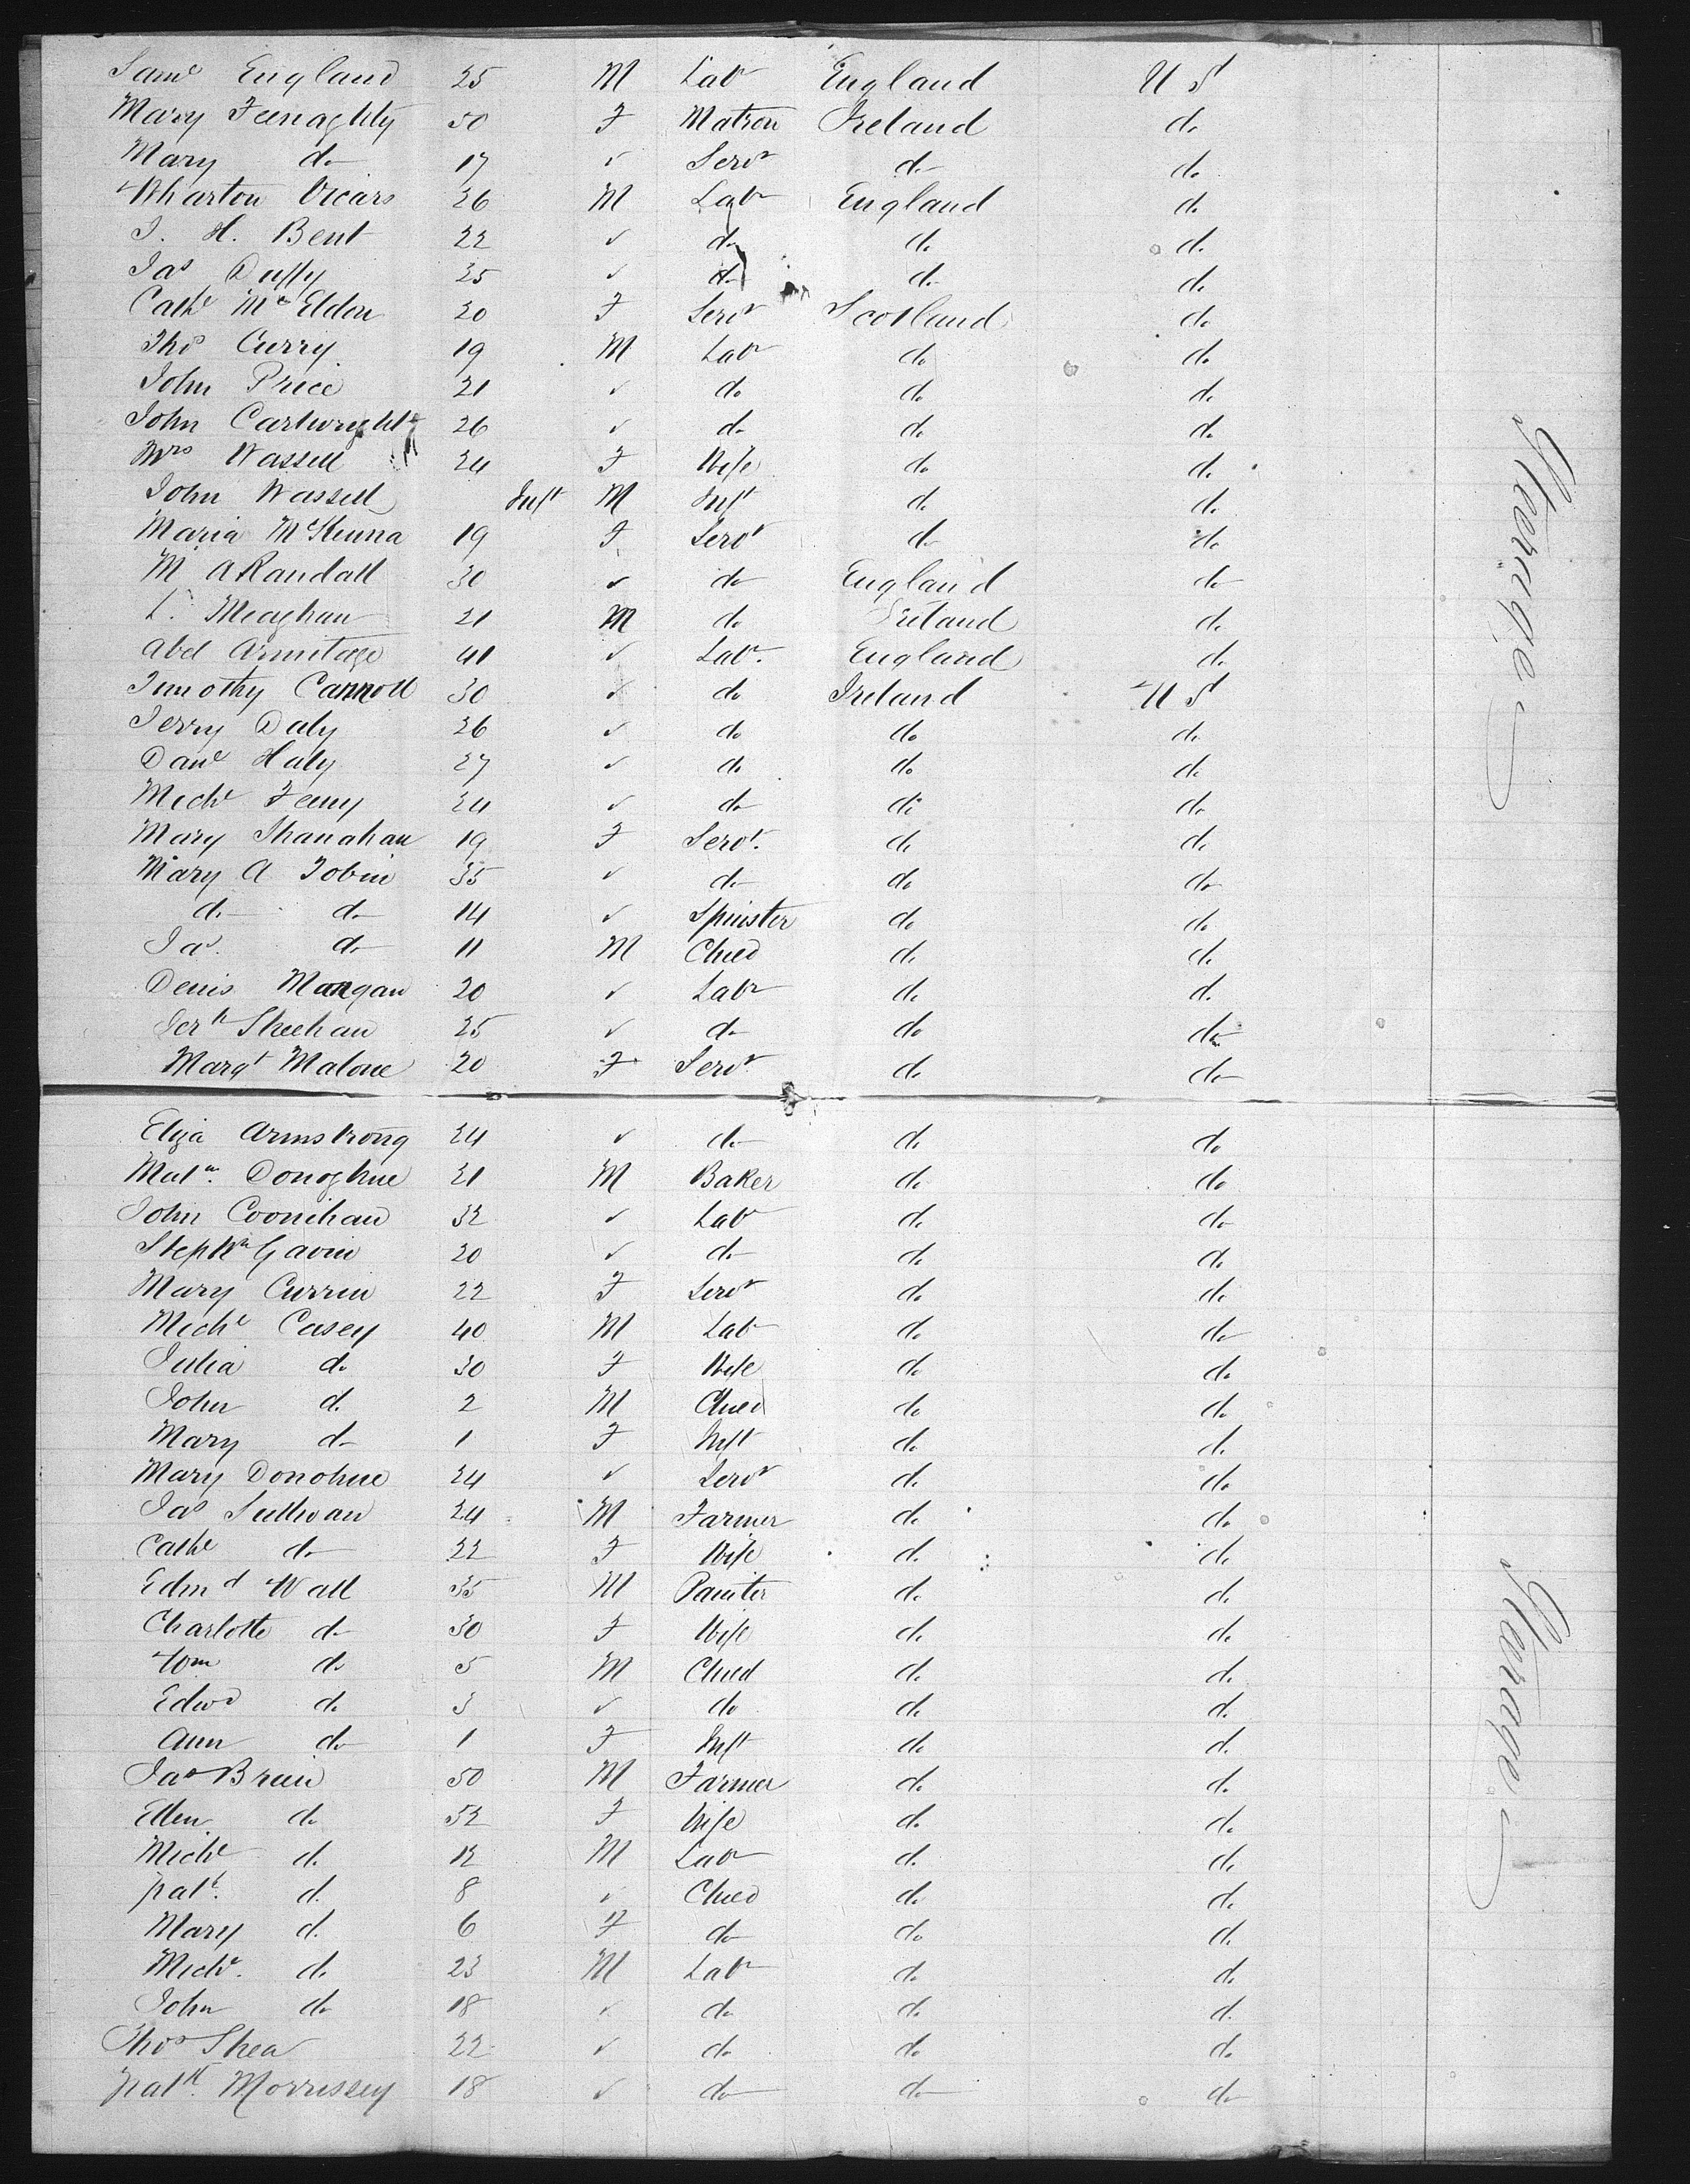 Saml England 25 M Labr England U S
Mary Feenaghty 50 F Matron Ireland do
Mary do 17 ✓ Servt do do
Wharton Vicars 26 M Labr England do
J. H. Bent 22 ✓ do do do
Jas Duffy 25 ✓ do do do
Cathe McEldon 20 F Servt Scotland do
Thos Curry 19 M Labr do do
John Price 21 ✓ do do do
John Cartwright 26 ✓ do do do
Mrs Wassell 24 F Wife do do
John Wassell Inft M Inft do do
Maria McKenna 19 F Servt do do
M A Randall 30 ✓ do England do
L. Meaghan 21 M do Ireland do
Abel Armitage 41 ✓ Labr. England do
Timothy Carroll 30 ✓ do Ireland U S
Jerry Daly 26 ✓ do do do
Danl Haly 27 ✓ do do do
Michl Feeny 24 ✓ do do do
Mary Shanahan 19 F Servt. do do
Mary A Tobin 35 ✓ do do do
do do 14 ✓ Spinster do do
Jas. do 11 M Child do do
Denis Mangan 20 ✓ Labr do do
Jerh Sheehan 25 ✓ do do do
Margt Malone 20 F Servt do do
Eliza Armstrong 24 ✓ do do do
Donoghue 21 M Baker do do
John Coonihan 32 ✓ Labr do do
Stephn Gavin 20 ✓ do do do
Mary Currin 22 F Servt do do
Michl Casey 40 M Labr do do
Julia do 30 F Wife do do
John do 2 M Child do do
Mary do 1 F Inft do do
Mary Donohue 24 ✓ Servt do do
Jas Sullivan 24 M Farmer do do
Cathe do 22 F Wife do do
Edmd Wall 35 M Painter do do
Charlotte do 30 F Wife do do
Wm do 5 M Child do do
Edwd do 3 ✓ do do do
Ann do 1 F Inft do do
Jas Brein 50 M Farmer do do
Ellen do 52 F Wife do do
Michl do 12 M Labr do do
Patk. do 8 ✓ Child do do
Mary do 6 F do do do
Michl. do 23 M Labr do do
John do 18 ✓ do do do
Thos Shea 22 ✓ do do do
Patk. Morrissey 18 ✓ do do do
Steerage
Steerage